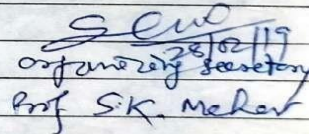 28/02/19
Organizing Secretary
Prof S.K.